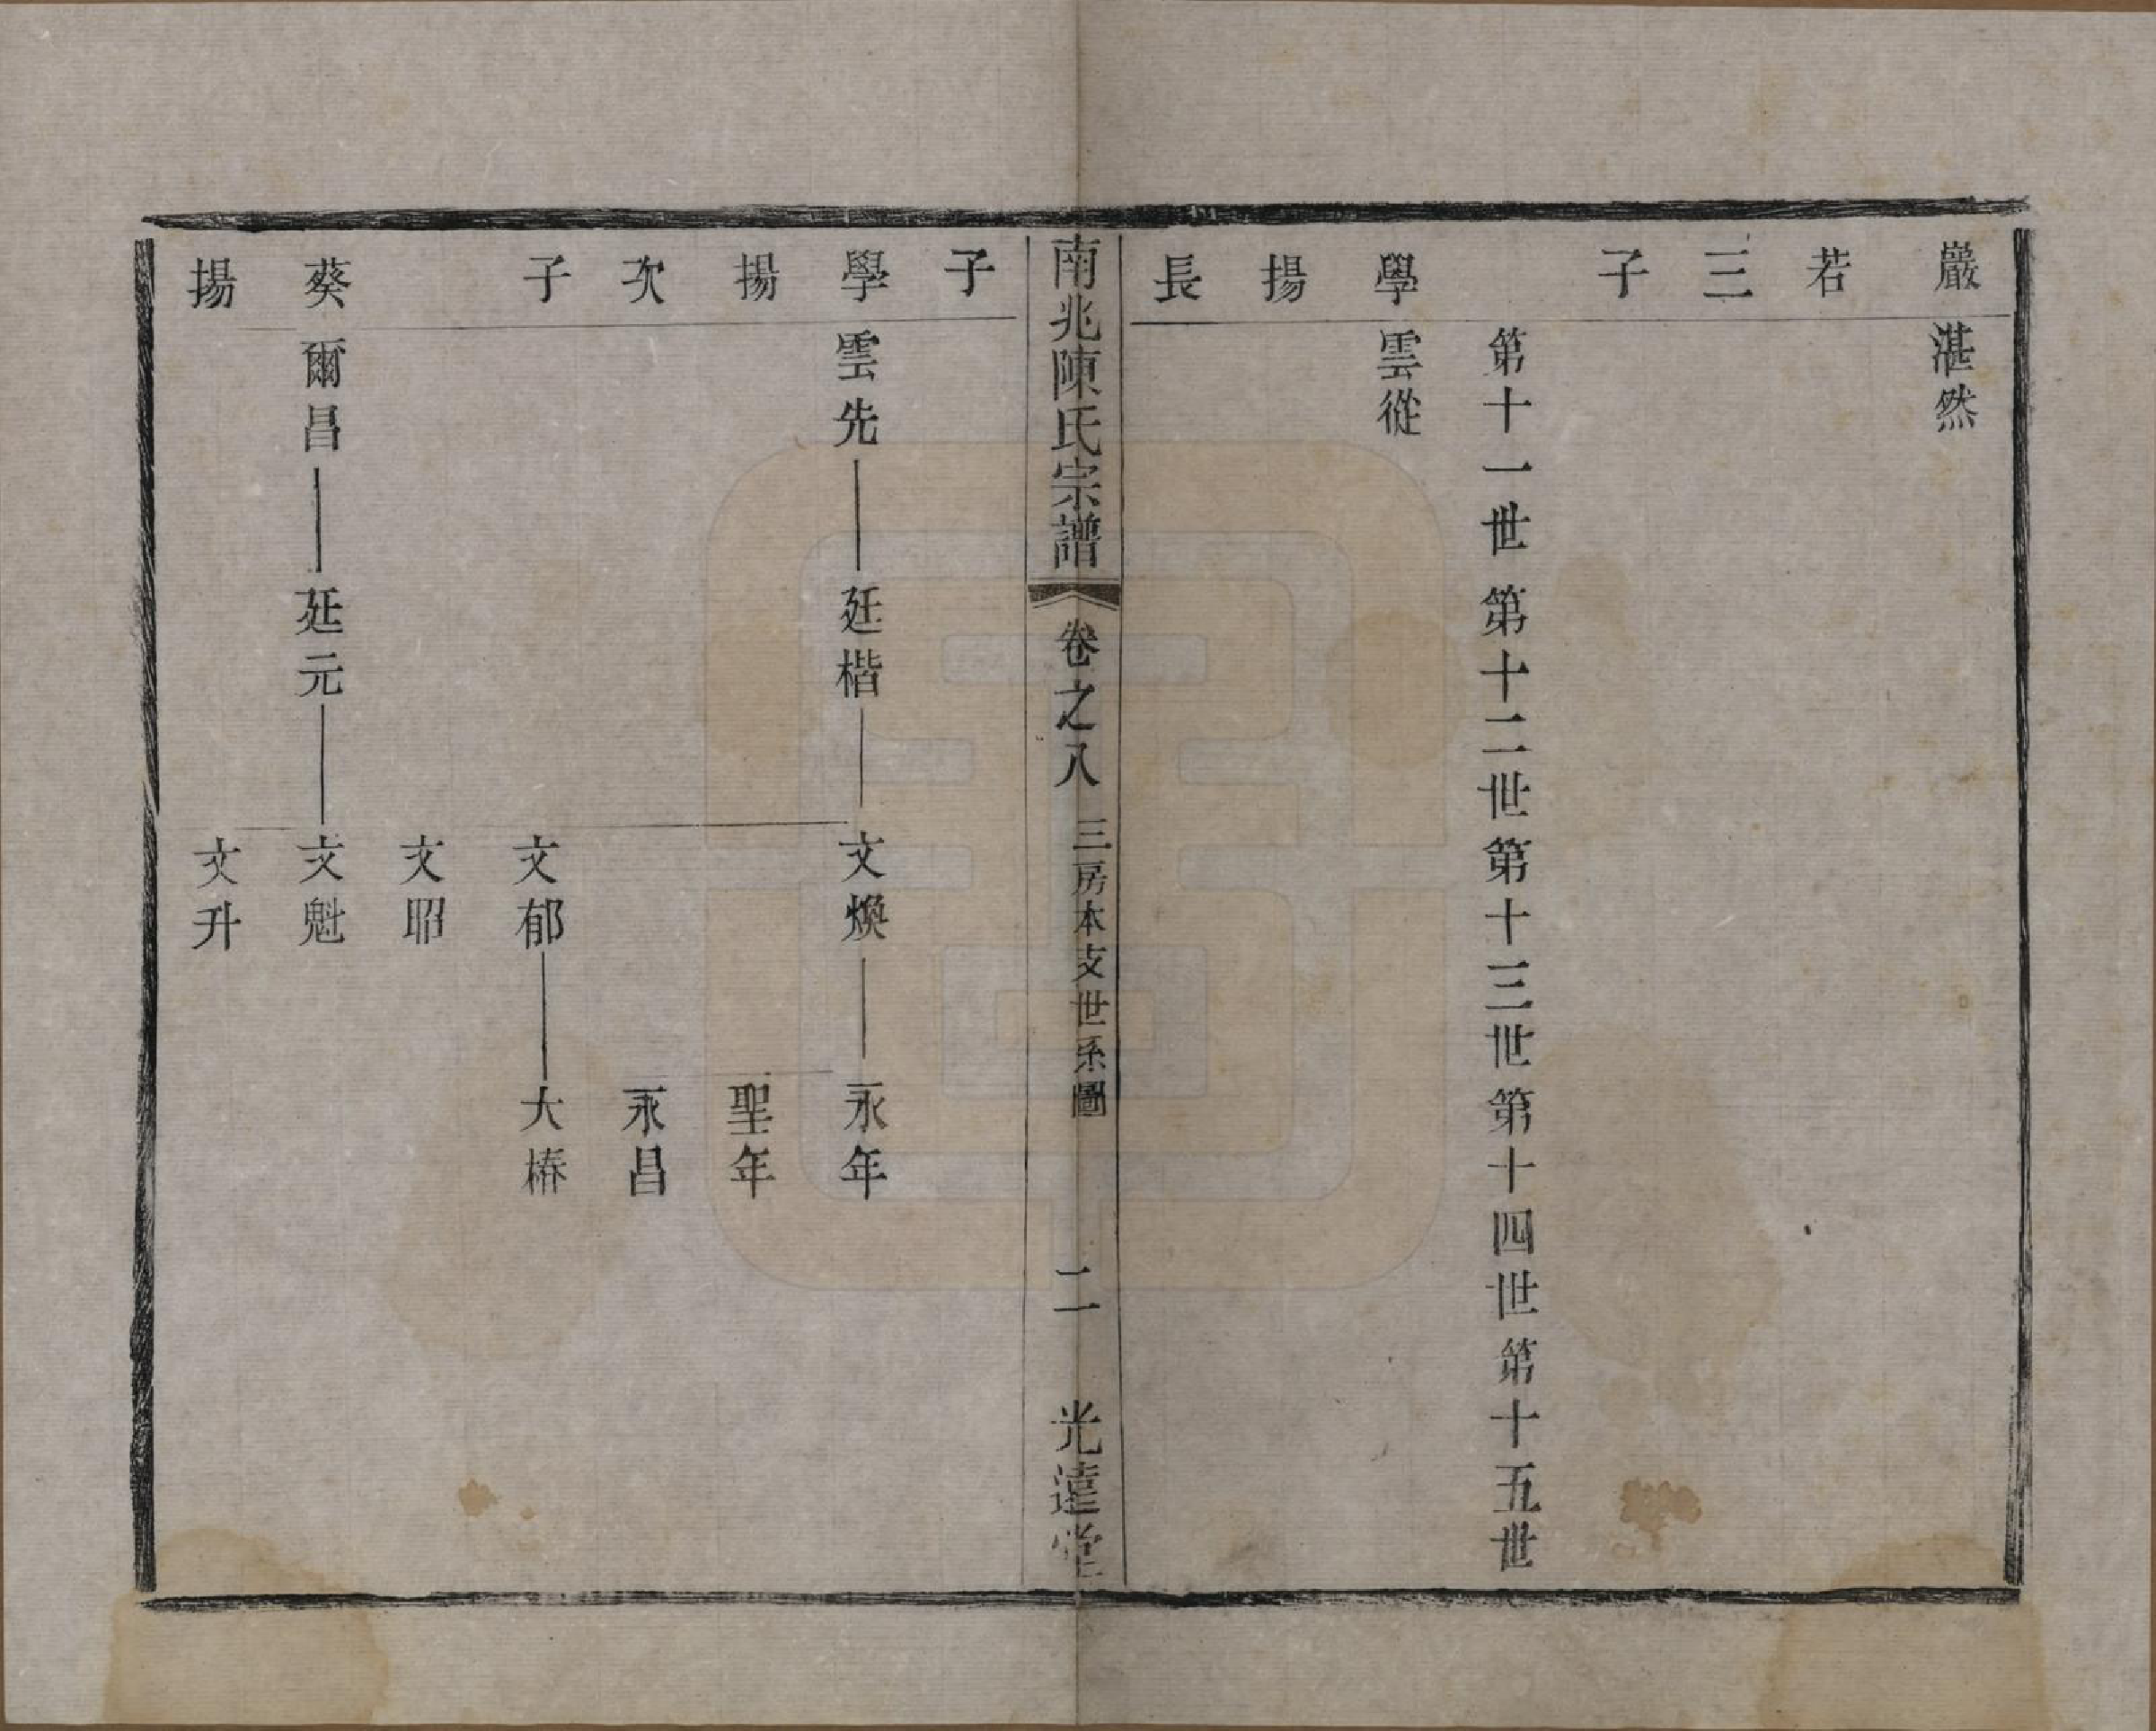 巖 湛然
若
三
子
第十一世 第十二世 第十三世 第十四世 第十五世
學 雲從
揚
長
南兆陳氏宗譜 卷之八 三房本支世系圖 二 光遠堂
子
學 雲先 廷楷 文煥 永年
揚 聖年
次 永昌
子 文郁 大椿
文昭
葵 爾昌 廷元 文魁
揚 文升